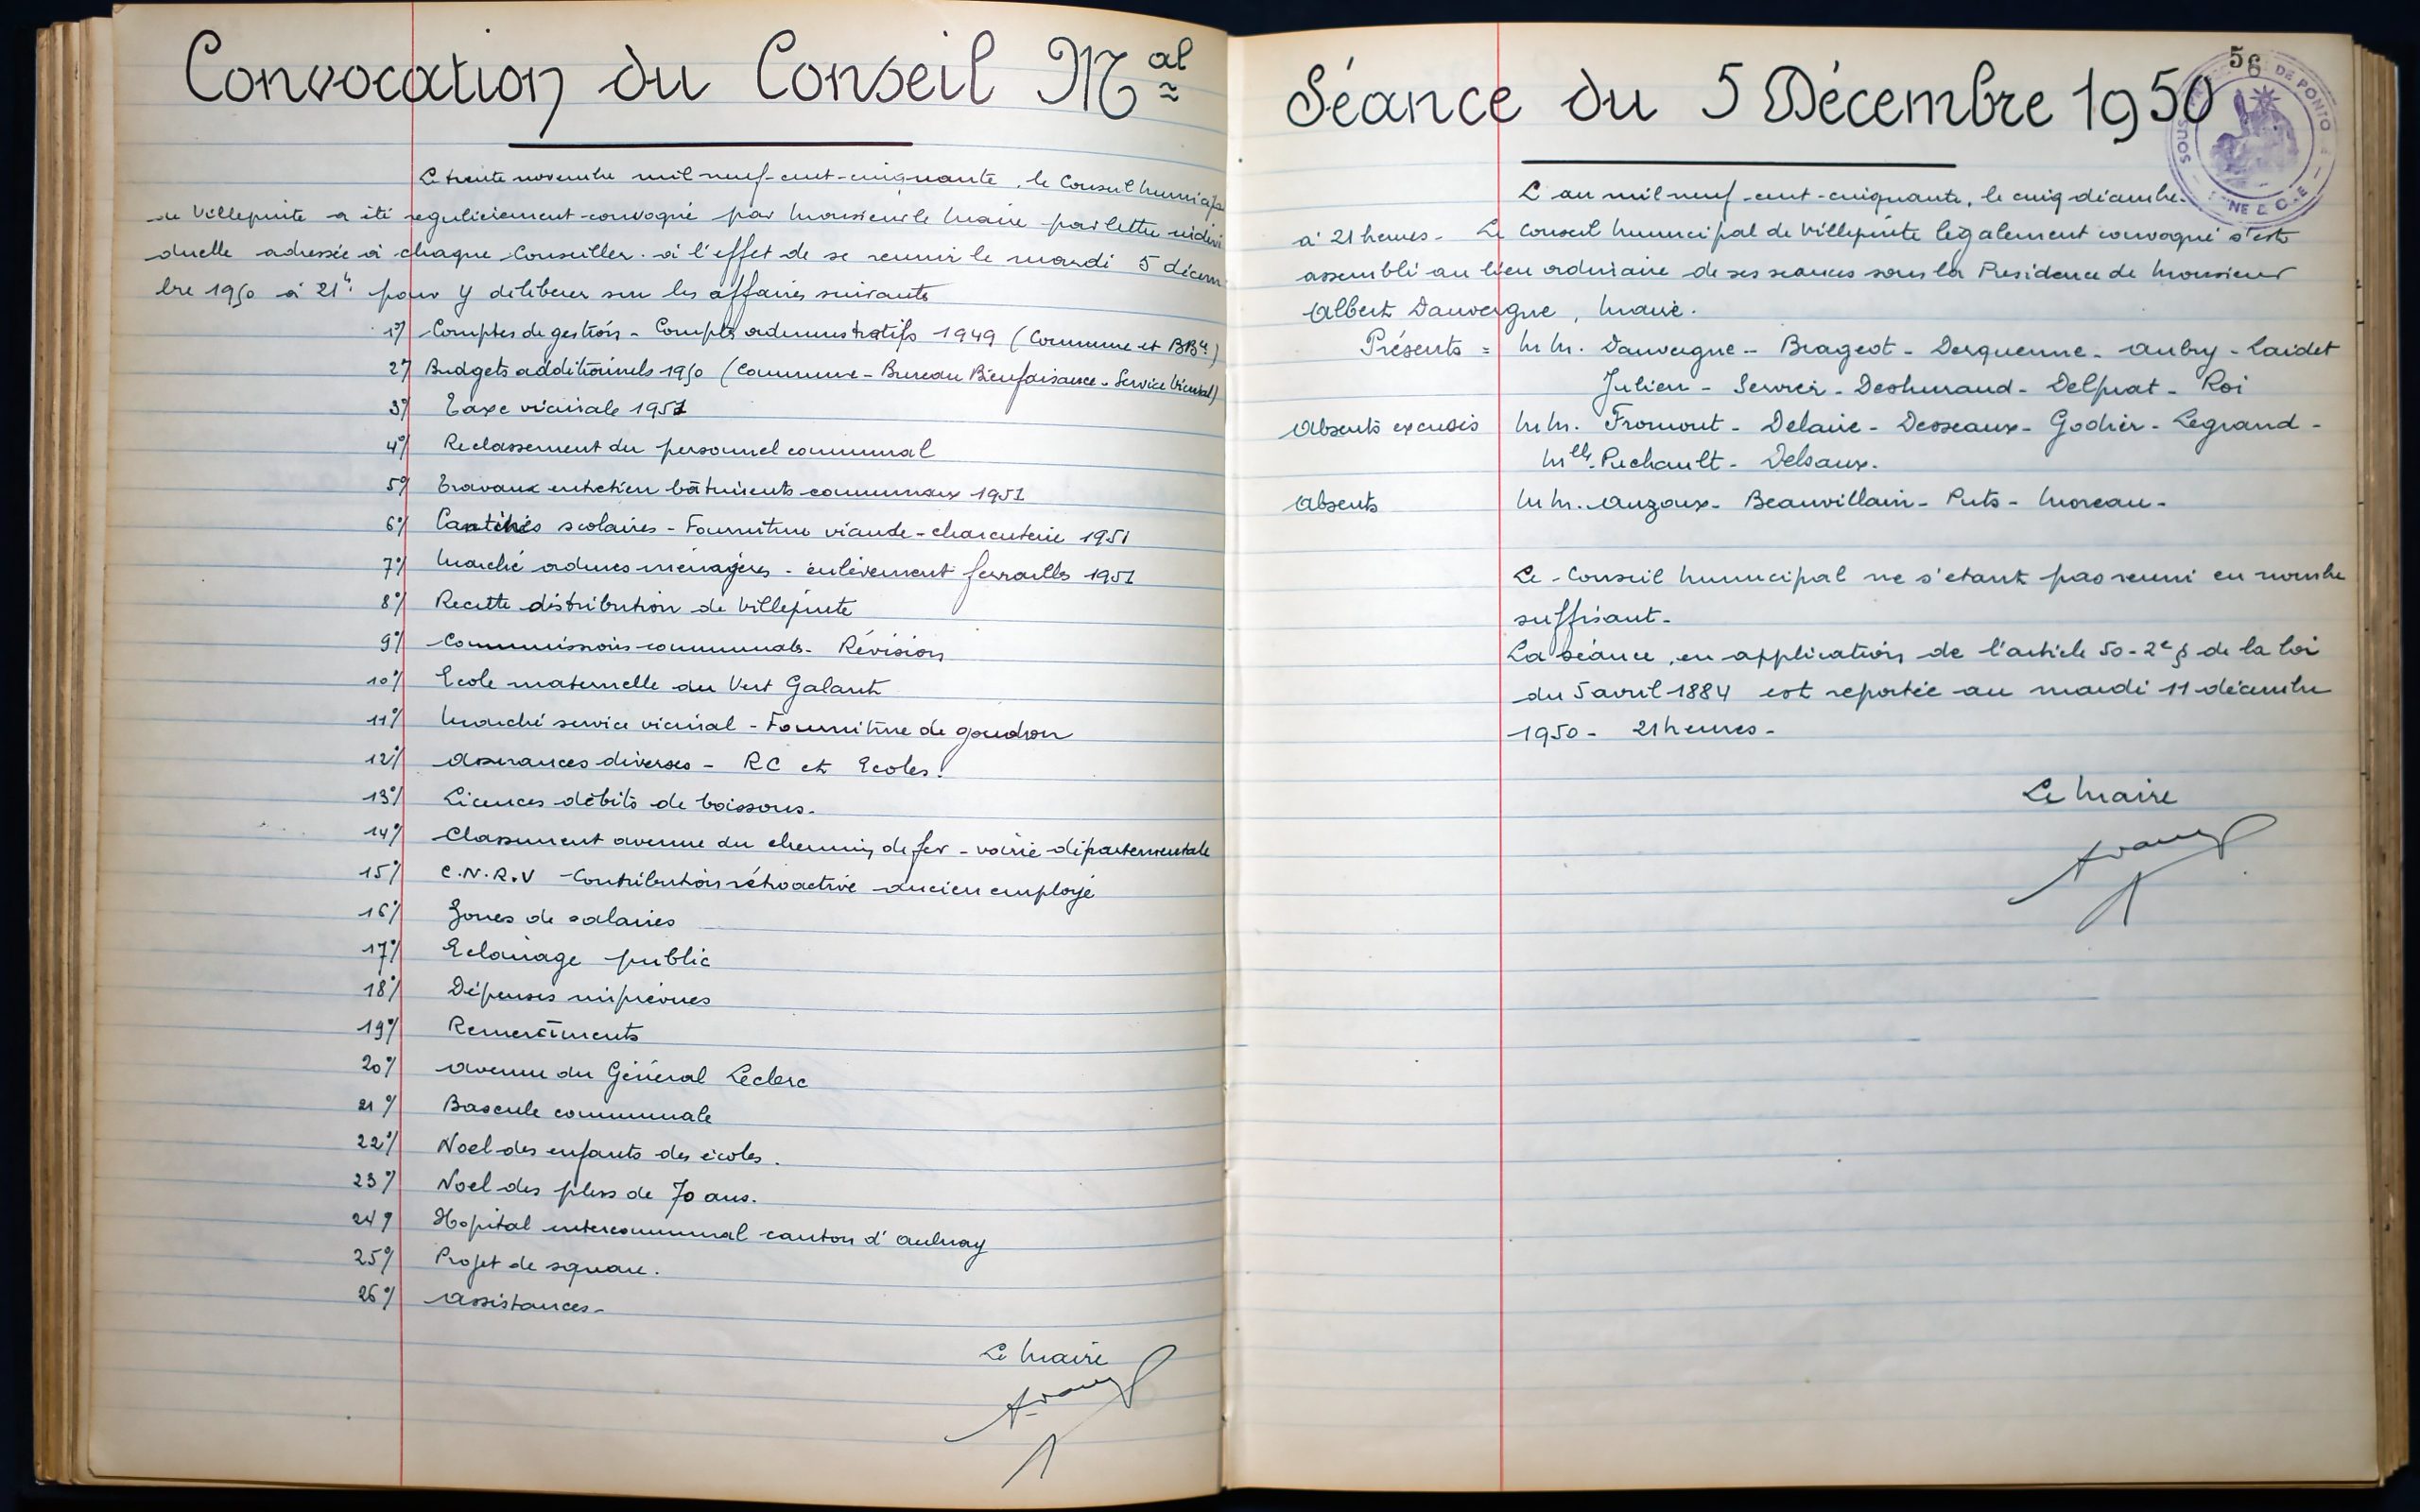 Convocation du Conseil Mal
Le trente novembre mil neuf-cent-cinquante, le Conseil Municipal
de Villepinte a été regulièrement convoqué par Monsieur le Maire par lettre indivi
duelle adressée à chaque Conseiller à l'effet de se reunir le mardi 5 décem
bre 1950 à 21h pour y déliberer sur les affaires suivants
1°/ Comptes de gestion - Compte administratifs 1949 (Commune et BBce)
2°/ Budgets additionnels 1950 (Commune - Bureau Bienfaisance - Service Vicinal)
3°/ Taxe vicinale 1951
4°/ Reclassement du personnel communal
5°/ Travaux entretien bâtiments communaux 1951
6°/ Cantines scolaires - Fourniture viande - charcuterie 1951
7°/ Marché ordures ménagères - enlèvement ferrailles 1951
8°/ Recette distribution de Villepinte
9°/ Commissions communales - Révision
10°/ Ecole maternelle du Vert Galant
11°/ Marché service vicinal - Fourniture de goudron
12°/ Assurances diverses - RC et Ecoles.
13°/ Licences débits de boissons.
14°/ Classement avenue du chemin de fer - voirie départementale
15°/ C.N.R.V - Contribution rétroactive ancien employé
16°/ Zones de salaires
17°/ Eclairage public
18°/ Dépenses imprévues
19°/ Remerciments
20°/ Avenue du Général Leclerc
21°/ Bascule communale
22°/ Noel des enfants des écoles.
23°/ Noel des plus de 70 ans.
24°/ Hopital intercommunal canton d'Aulnay
25°/ Projet de square.
26°/ Assistances -
Le Maire
56
Séance du 5 Décembre 1950
L'an mil neuf-cent-cinquante, le cinq décembre
à 21 heures - Le Conseil Municipal de Villepinte légalement convoqué s'est
assemblé au lieu ordinaire de ses seances sous la Presidence de Monsieur
Albert Dauvergne, Maire.
Présents = MM. Dauvergne - Brageot - Derquenne - Aubry - Laidet
Julien - Servier - Deshuraud - Delprat - Roi
Absents excusés MM. Fromont - Delaire - Desseaux - Godier - Legrand -
Mlle Puchault - Delsaux.
Absents MM. Auzoux - Beauvillain - Puts - Moreau -
Le Conseil Municipal ne s'étant pas reuni en nombre
suffisant -
La séance, en application de l'article 50 - 2e § de la loi
du 5 avril 1884 est reportée au mardi 11 décembre
1950 - 21 heures -
Le Maire